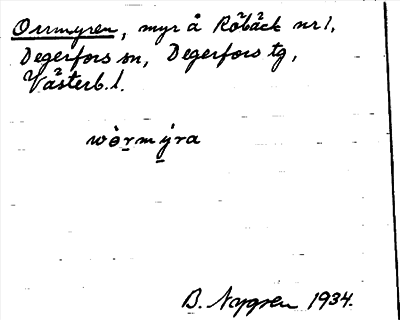 Orrmyren, myr å Röbäck nr 1,
Degerfors sn, Degerfors tg,
Västerb. l.
B. Nygren 1934.